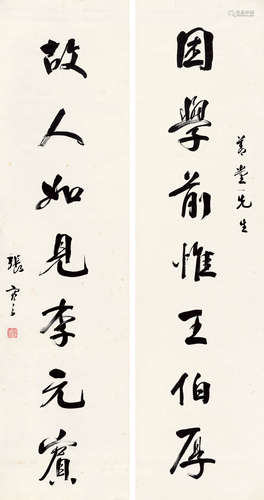 困學前惟王伯厚
善堂先生
故人如見李元賓
張